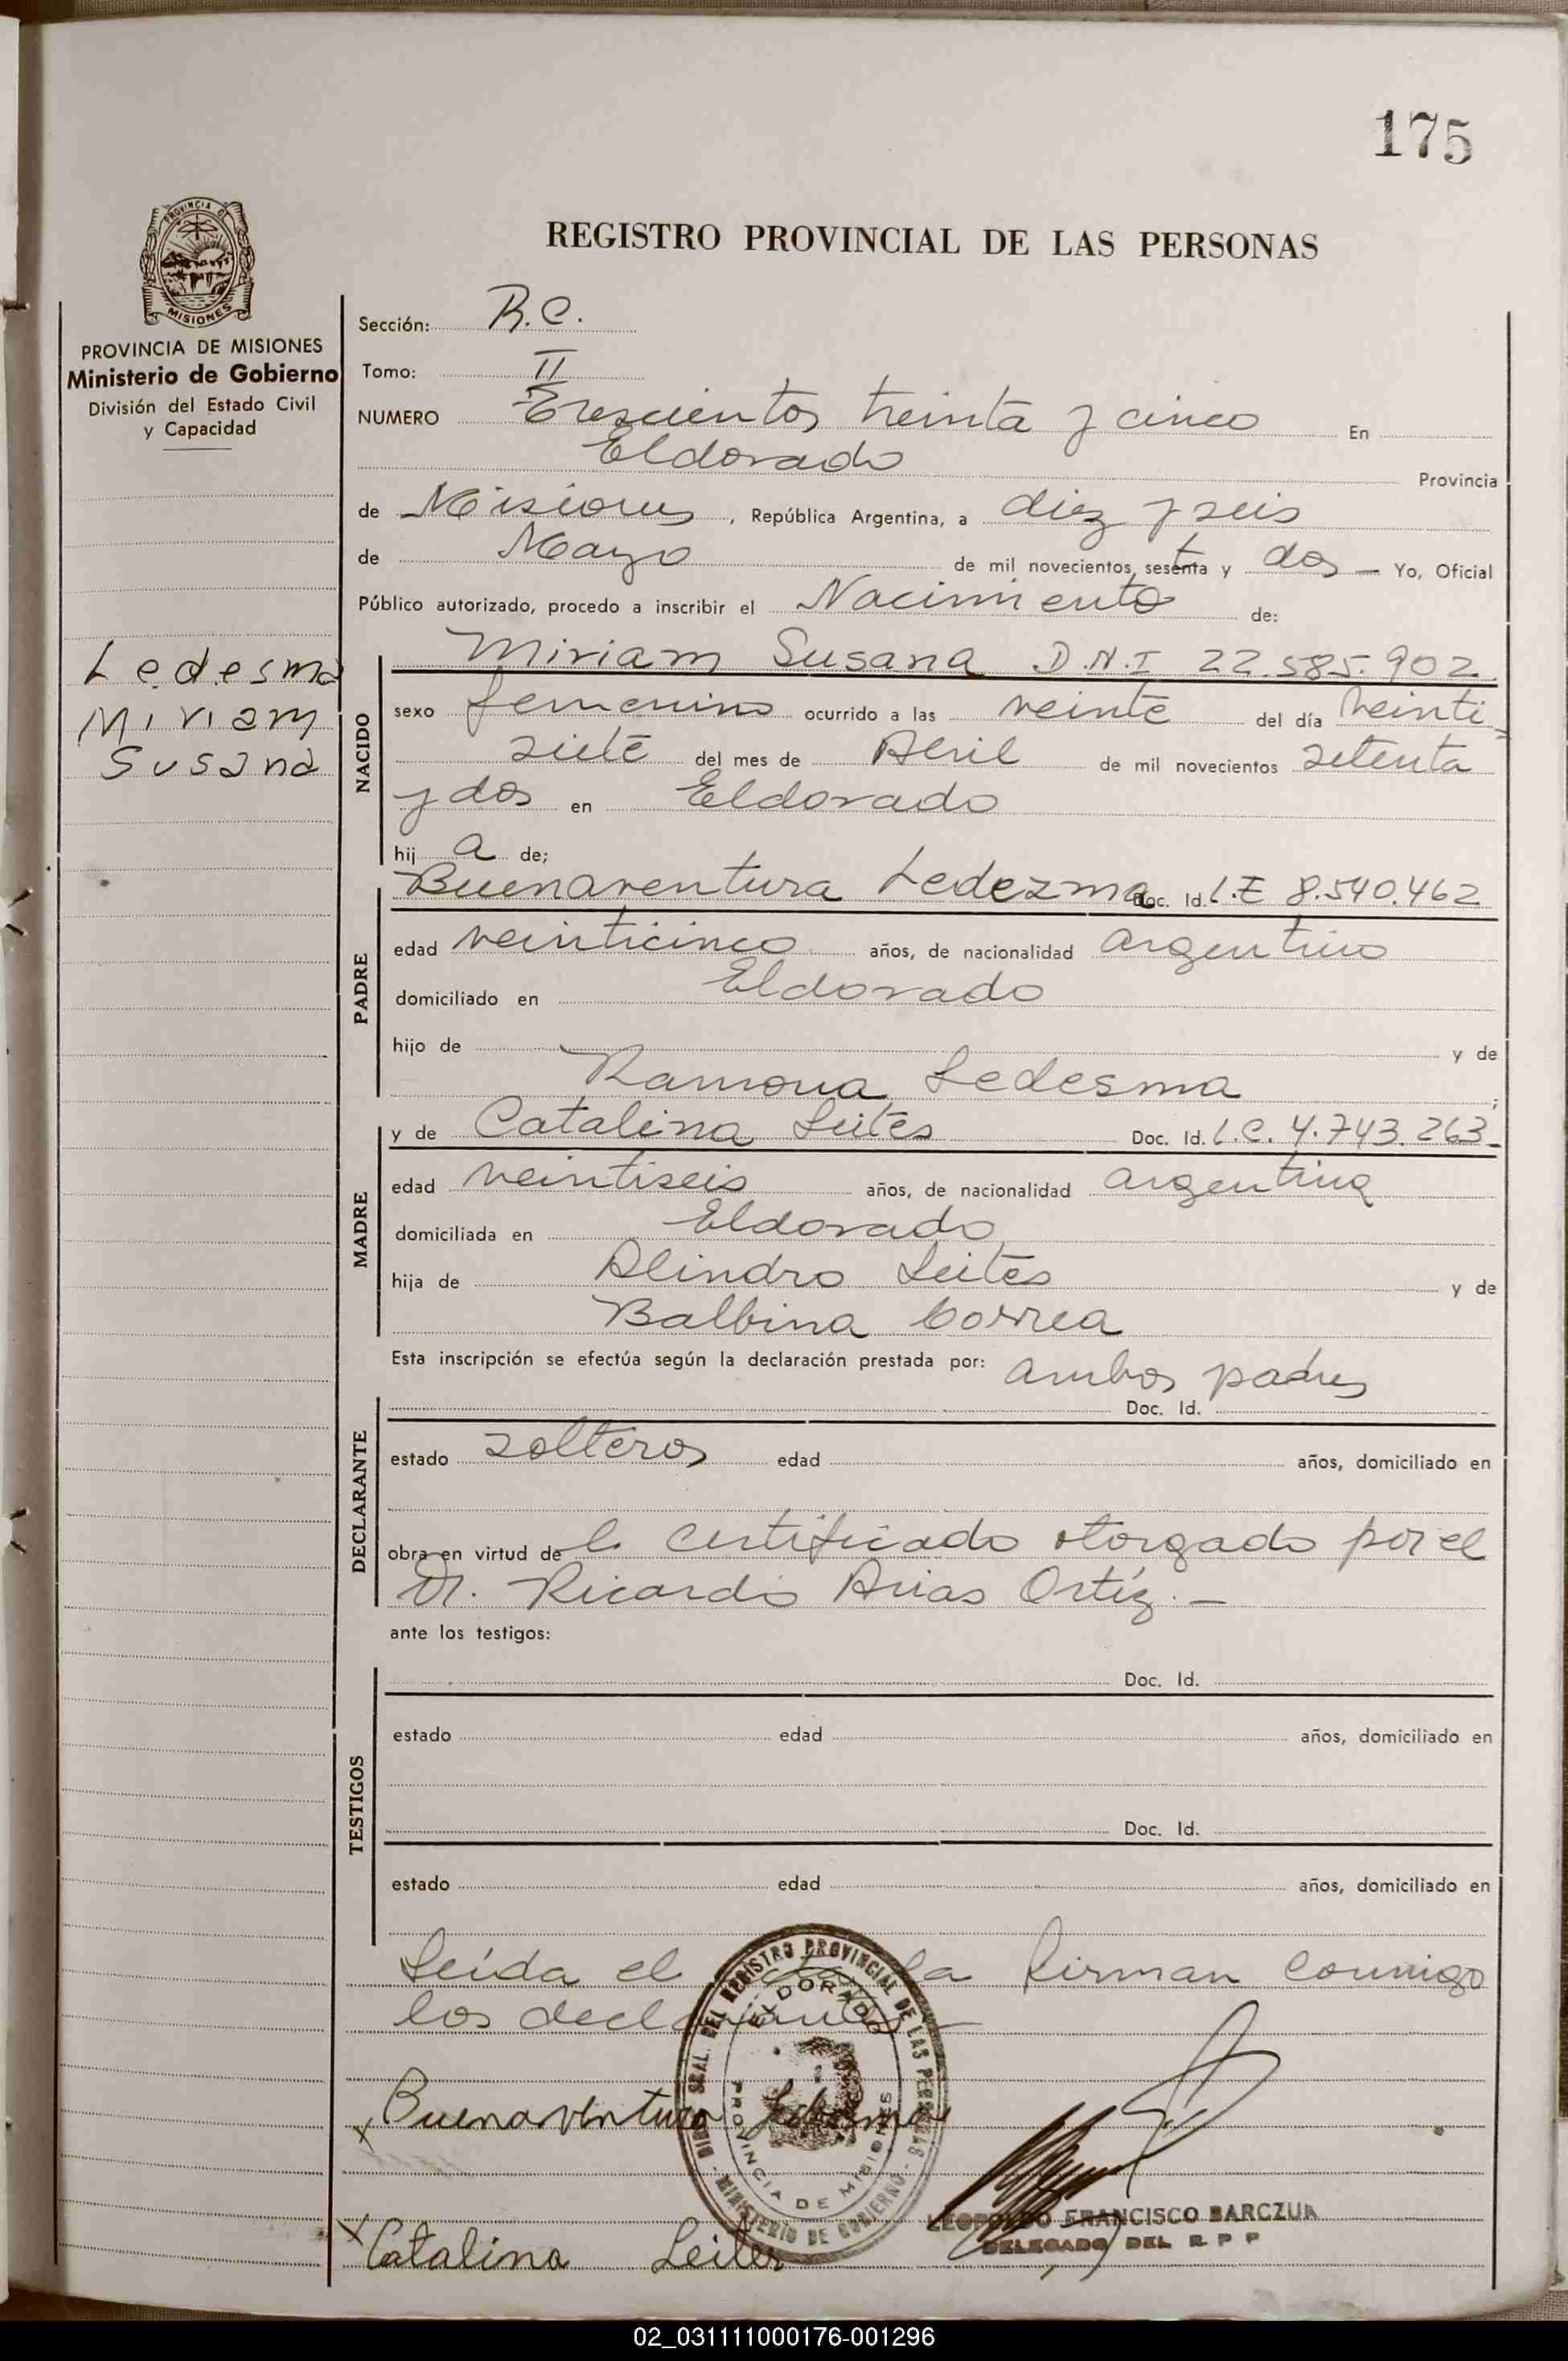 175
REGISTRO PROVINCIAL DE LAS PERSONAS
PROVINCIA DE MISIONES
MISIONES
PROVINCIA DE MISIONES
Ministerio de Gobierno
División del Estado Civil
y Capacidad
Ledesma
Miriam
Susana
Sección: R.C.
Tomo: II
NUMERO Trescientos treinta y cinco En
Eldorado Provincia
de Misiones, República Argentina, a diez y seis
de Mayo de mil novecientos setenta y dos — Yo, Oficial
Público autorizado, procedo a inscribir el Nacimiento de:
NACIDO
Miriam Susana D.N.I 22.585.902
sexo femenino ocurrido a las veinte del día veinti-
siete del mes de Abril de mil novecientos setenta
y dos en Eldorado
hij a de;
PADRE
Buenaventura Ledezma Doc. Id. L.E 8.540.462
edad veinticinco años, de nacionalidad argentino
domiciliado en Eldorado
hijo de y de
Ramona Ledesma ;
MADRE
y de Catalina Leites Doc. Id. L.C. 4.743.263-
edad veintiseis años, de nacionalidad argentina
domiciliada en Eldorado
hija de Alindro Leites y de
Balbina Correa
Esta inscripción se efectúa según la declaración prestada por: ambos padres
DECLARANTE
Doc. Id.
estado solteros edad años, domiciliado en
obra en virtud de certificado otorgado por el
Dr. Ricardo Arias Ortíz.—
ante los testigos:
TESTIGOS
Doc. Id.
estado edad años, domiciliado en
Doc. Id.
estado edad años, domiciliado en
Leída el la firman conmigo
los declarantes—
DEL REGISTRO PROVINCIAL DE LAS PERSONAS - MINISTERIO DE GOBIERNO -
ELDORADO
PROVINCIA DE MISIONES
x Buenaventura Ledesma
LEOPOLDO FRANCISCO BARCZUK
DELEGADO DEL R P P
x Catalina Leites
02_031111000176-001296